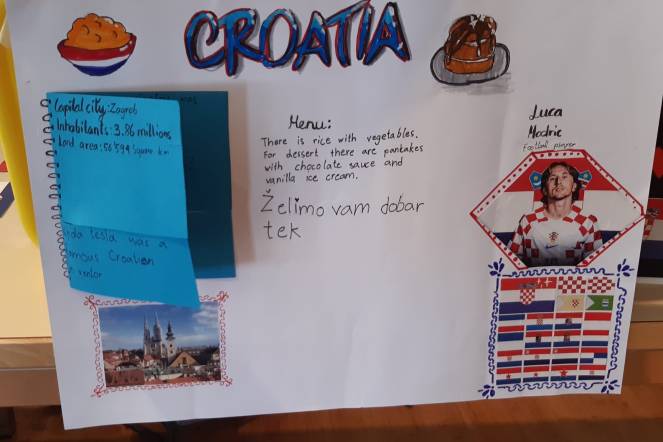 CROATIA
Capital city: Zagreb
Inhabitants: 3.86 millions
Land area: 56 594 square km
tesla was a
Croatian
Menu:
There is rice with vegetables.
For dessert there are pankakes
with chocolate sauce and
vanilla ice cream.
Želimo vam dobar
tek
Luca
Modric
Football player